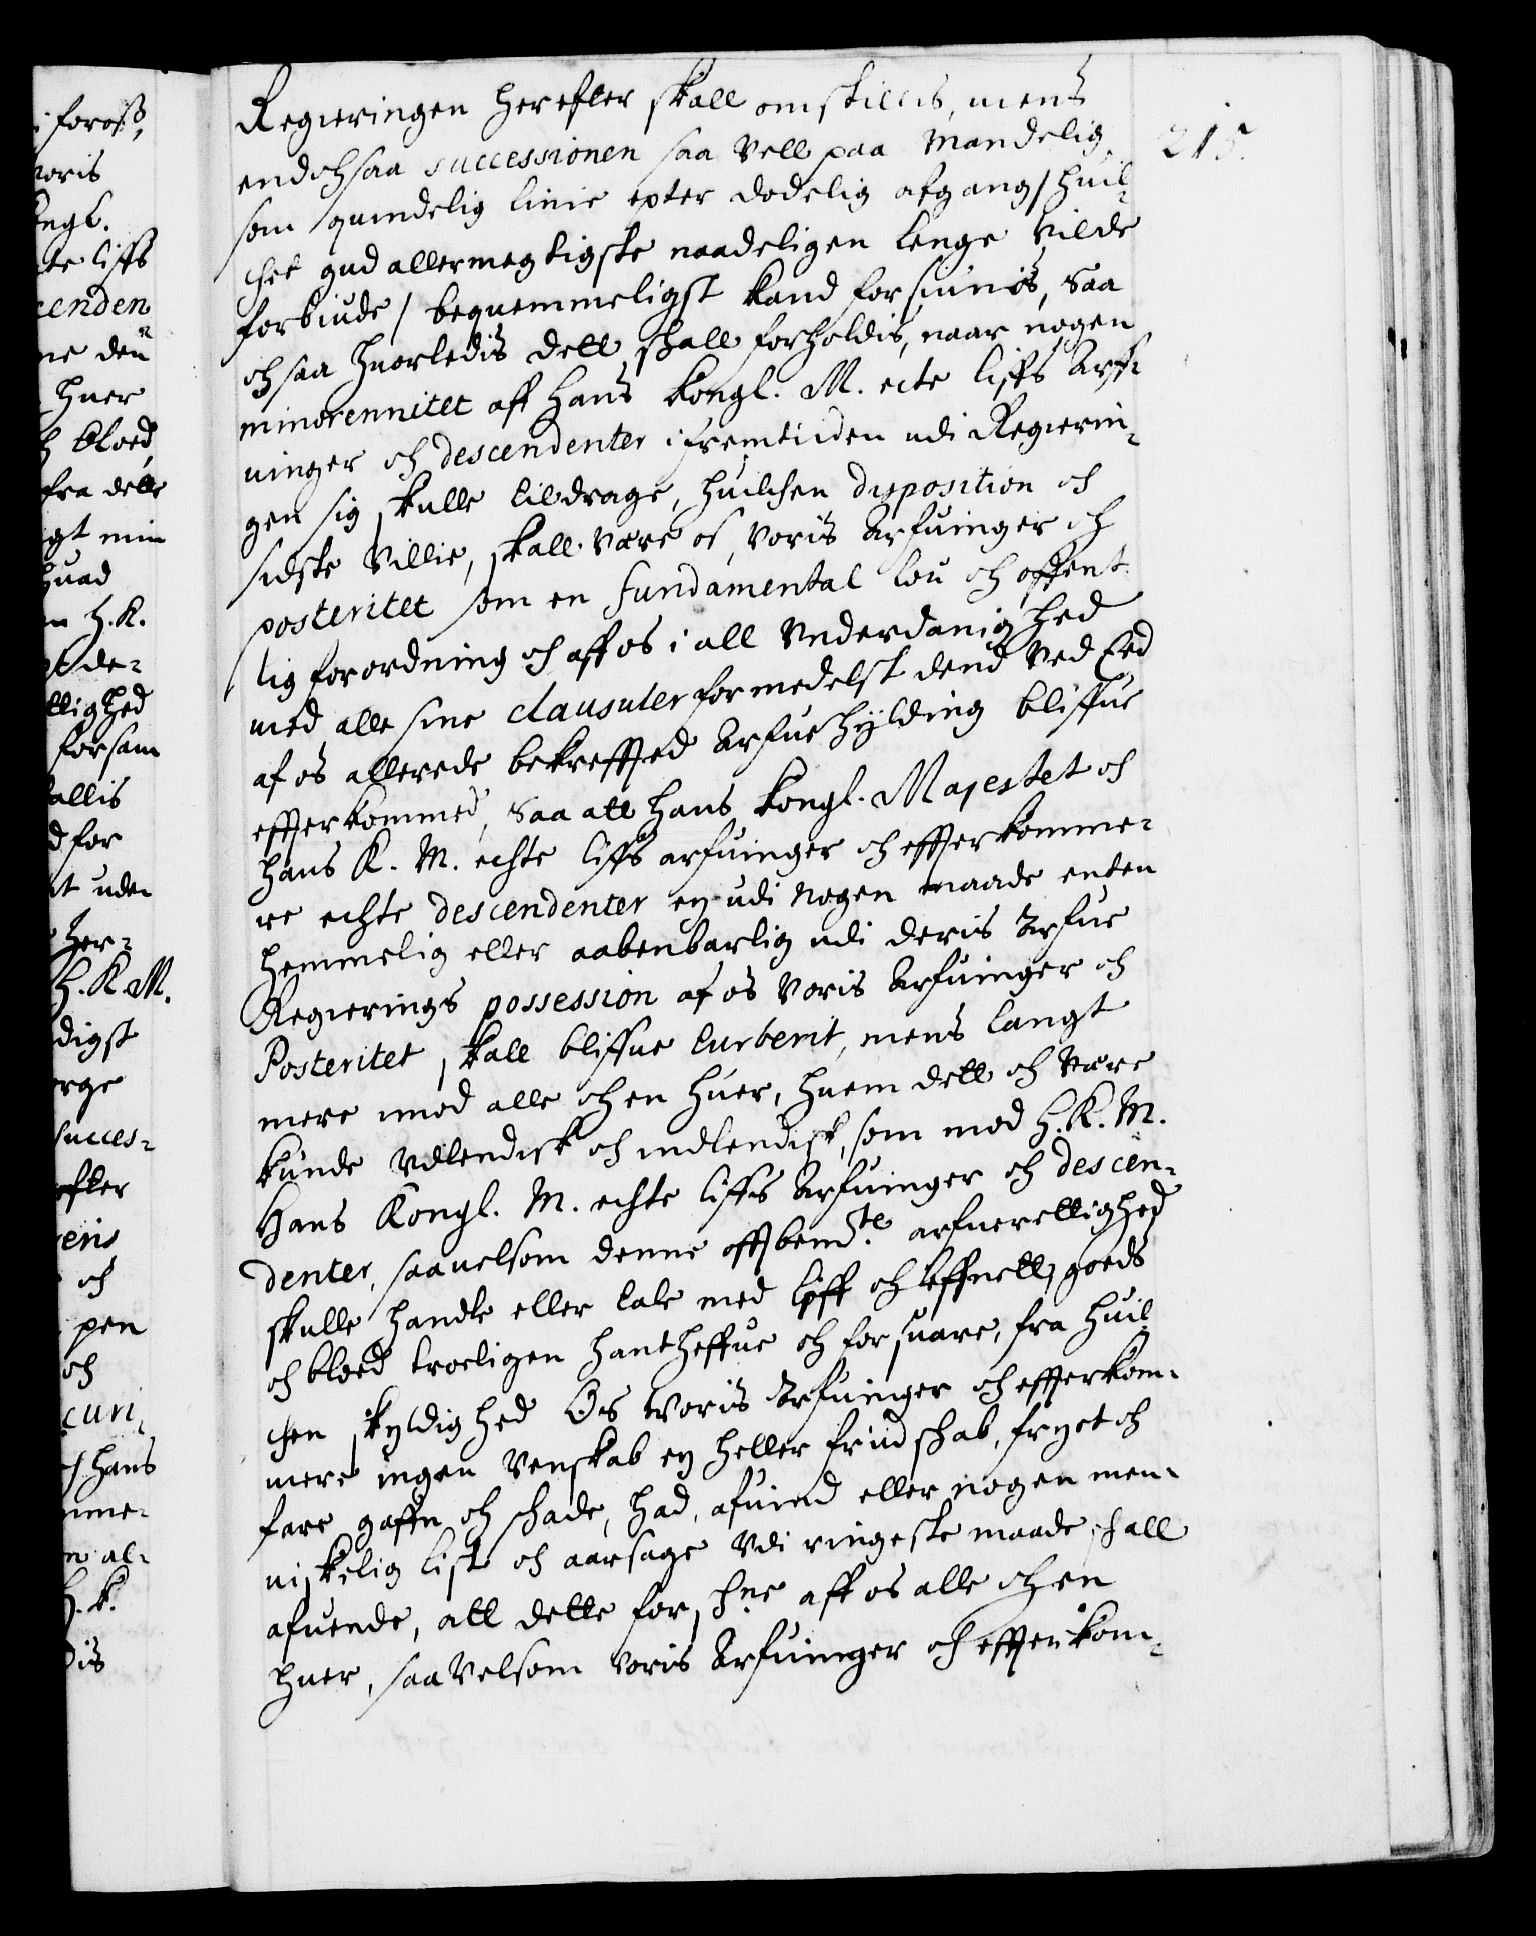 Regieringen herefter skall omskiftis, mens
endochsaa successionen saa vell paa Mandelig 215.
som quindelig linie epter dødelig afgang / huil-
chet gud allermegtigste naadeligen lenge vilde
forbiude / bequemmeligst kand forsiunis, saa
och saa huorledis dett schall forholdis, naar nogen
minorennitet aff Hans Kongl. M. ecte liffs Arf-
uinger och descendenter i fremtiden udi Regierin-
gen sig skulle tildrage, huilchen disposition och
sidste Villie, skall være os, voris Arfuinger och
posteritet som en fundamental lou och offent-
lig forordning och aff os i all Vnderdanighed
med alle sine clausuler formedelst dend ved Eed
af os allerede bekreffted Arfue hÿlding bliffue
effterkommed, Saa att Hans Kongl. Majestet och
Hans K. M. echte liffs arfuinger och effterkomme-
re echte descendenter ey udi nogen maade enten
hemmelig eller aabenbarlig udi deris Arfue
Regierings possession af os voris Arfuinger och
Posteritet, skall bliffue turberit, mens langt
mere imod alle och en huer, huem dett och være
kunde vdlendisk och indlendisk, som mod H. K. M.
Hans Kongl. M. echte liffs Arfuinger och descen-
denter, saauelsom denne offtbemte. arfuerettighed
skulle handle eller tale med liff och leffnett, goeds
och bloed troeligen handtheffue och forsuare, fra huil-
chen skyldighed Os Woris Arfuinger och effterkom-
mere ingen Venskab ey heller fiindschab, fryct och
fare gaffn och schade, had, afuind eller nogen men-
niskelig list och aarsage vdi ringeste maade schall
afuende, att dette forschne aff os alle och en
huer, saa velsom voris Arfuinger och effterkom-
i foroß,
voris
liffs
cenden
ne den
huer
bloed,
fra dette
min
huad
H. K.
de-
tighed
forsam
allis
for
ude
her-
H. K. M.
digst
succes-
effter
och
pen
och
hans
mme-
al-
H. K.